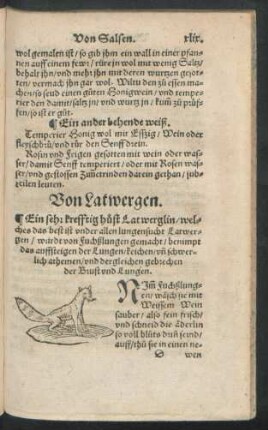 Von Salsen. xlix.
wol gemalen ist / so gib ihm ein wall in einer pfan-
nen auff einem fewr / rüre in wol mit wenig Saltz /
behalt ihn / und mehr ihn mit deren wurtzen gesot-
ten / vermach ihn gar wol. Wiltu den zů essen ma-
chen / so seud einen gůten Honigwein / und tempe-
rier den damit / saltz in / und wurtz in / zů prüf-
fen / so ist er gůt.
¶ Ein ander behende weiß.
Temperier Honig wol mit Essig / Wein oder
fleischbrů / und rür den Senff drein.
Rosin und Feigen gesotten mit wein oder was-
ser / damit Senff temperiert / oder mit Rosen was-
ser / und gestossen Zimetrinden darein gethan /
Von Latwergen.
¶ Ein sehr krefftig hůst Latwerglin / wel-
ches das best ist under allen lungensucht Latwer-
gen / würdt von Fuchßlungen gemacht / benimpt
das auffsteigen der Lungen / keichen / uñ schwer-
lich athemen / und dergleichen gebrechen
der Brust und Lungen.
NIm Fuchßlung-
en / wäsch sie mit
Weissem Wein
sauber / also fein frisch /
und schneid die åderlin
so voll blůts drin seind /
auß / thů sie in einen ne-
D wen